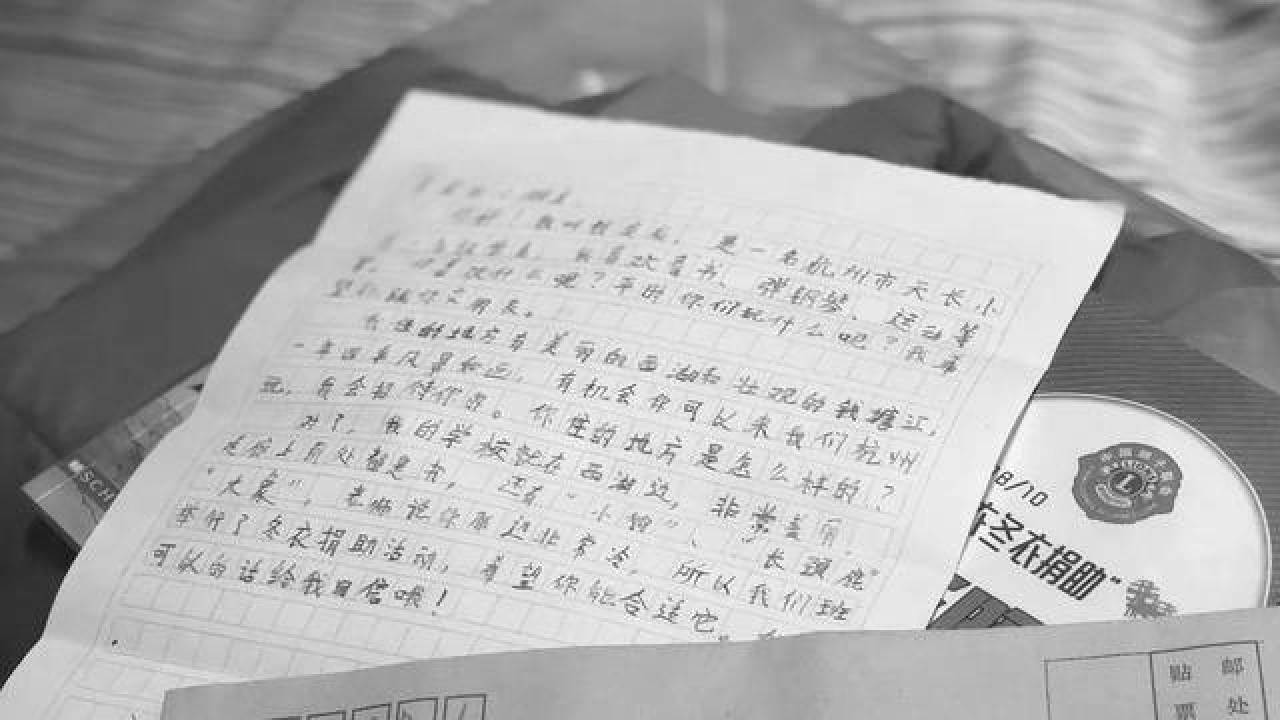 你好！我叫 是一名杭州市天长小
我喜欢看书、弹钢琴、运动等
等。你喜欢什么呢？平时你们玩什么呢？我希
望和你交朋友。
我住的地方有美丽的西湖和壮观的钱塘江，
一年四季风景如画，有机会你可以来我们杭州
玩，我会招待你的。你住的地方是怎么样的？
对了，我的学校就在西湖边，非常美丽，
还有“小狗”、“长颈鹿”
“大象”，老师说你那边非常冷，所以我们班
举行了冬衣捐助活动，希望你能合适它。
可以的话给我回信哦！
8/10
冬衣捐助”
贴 邮
票 处